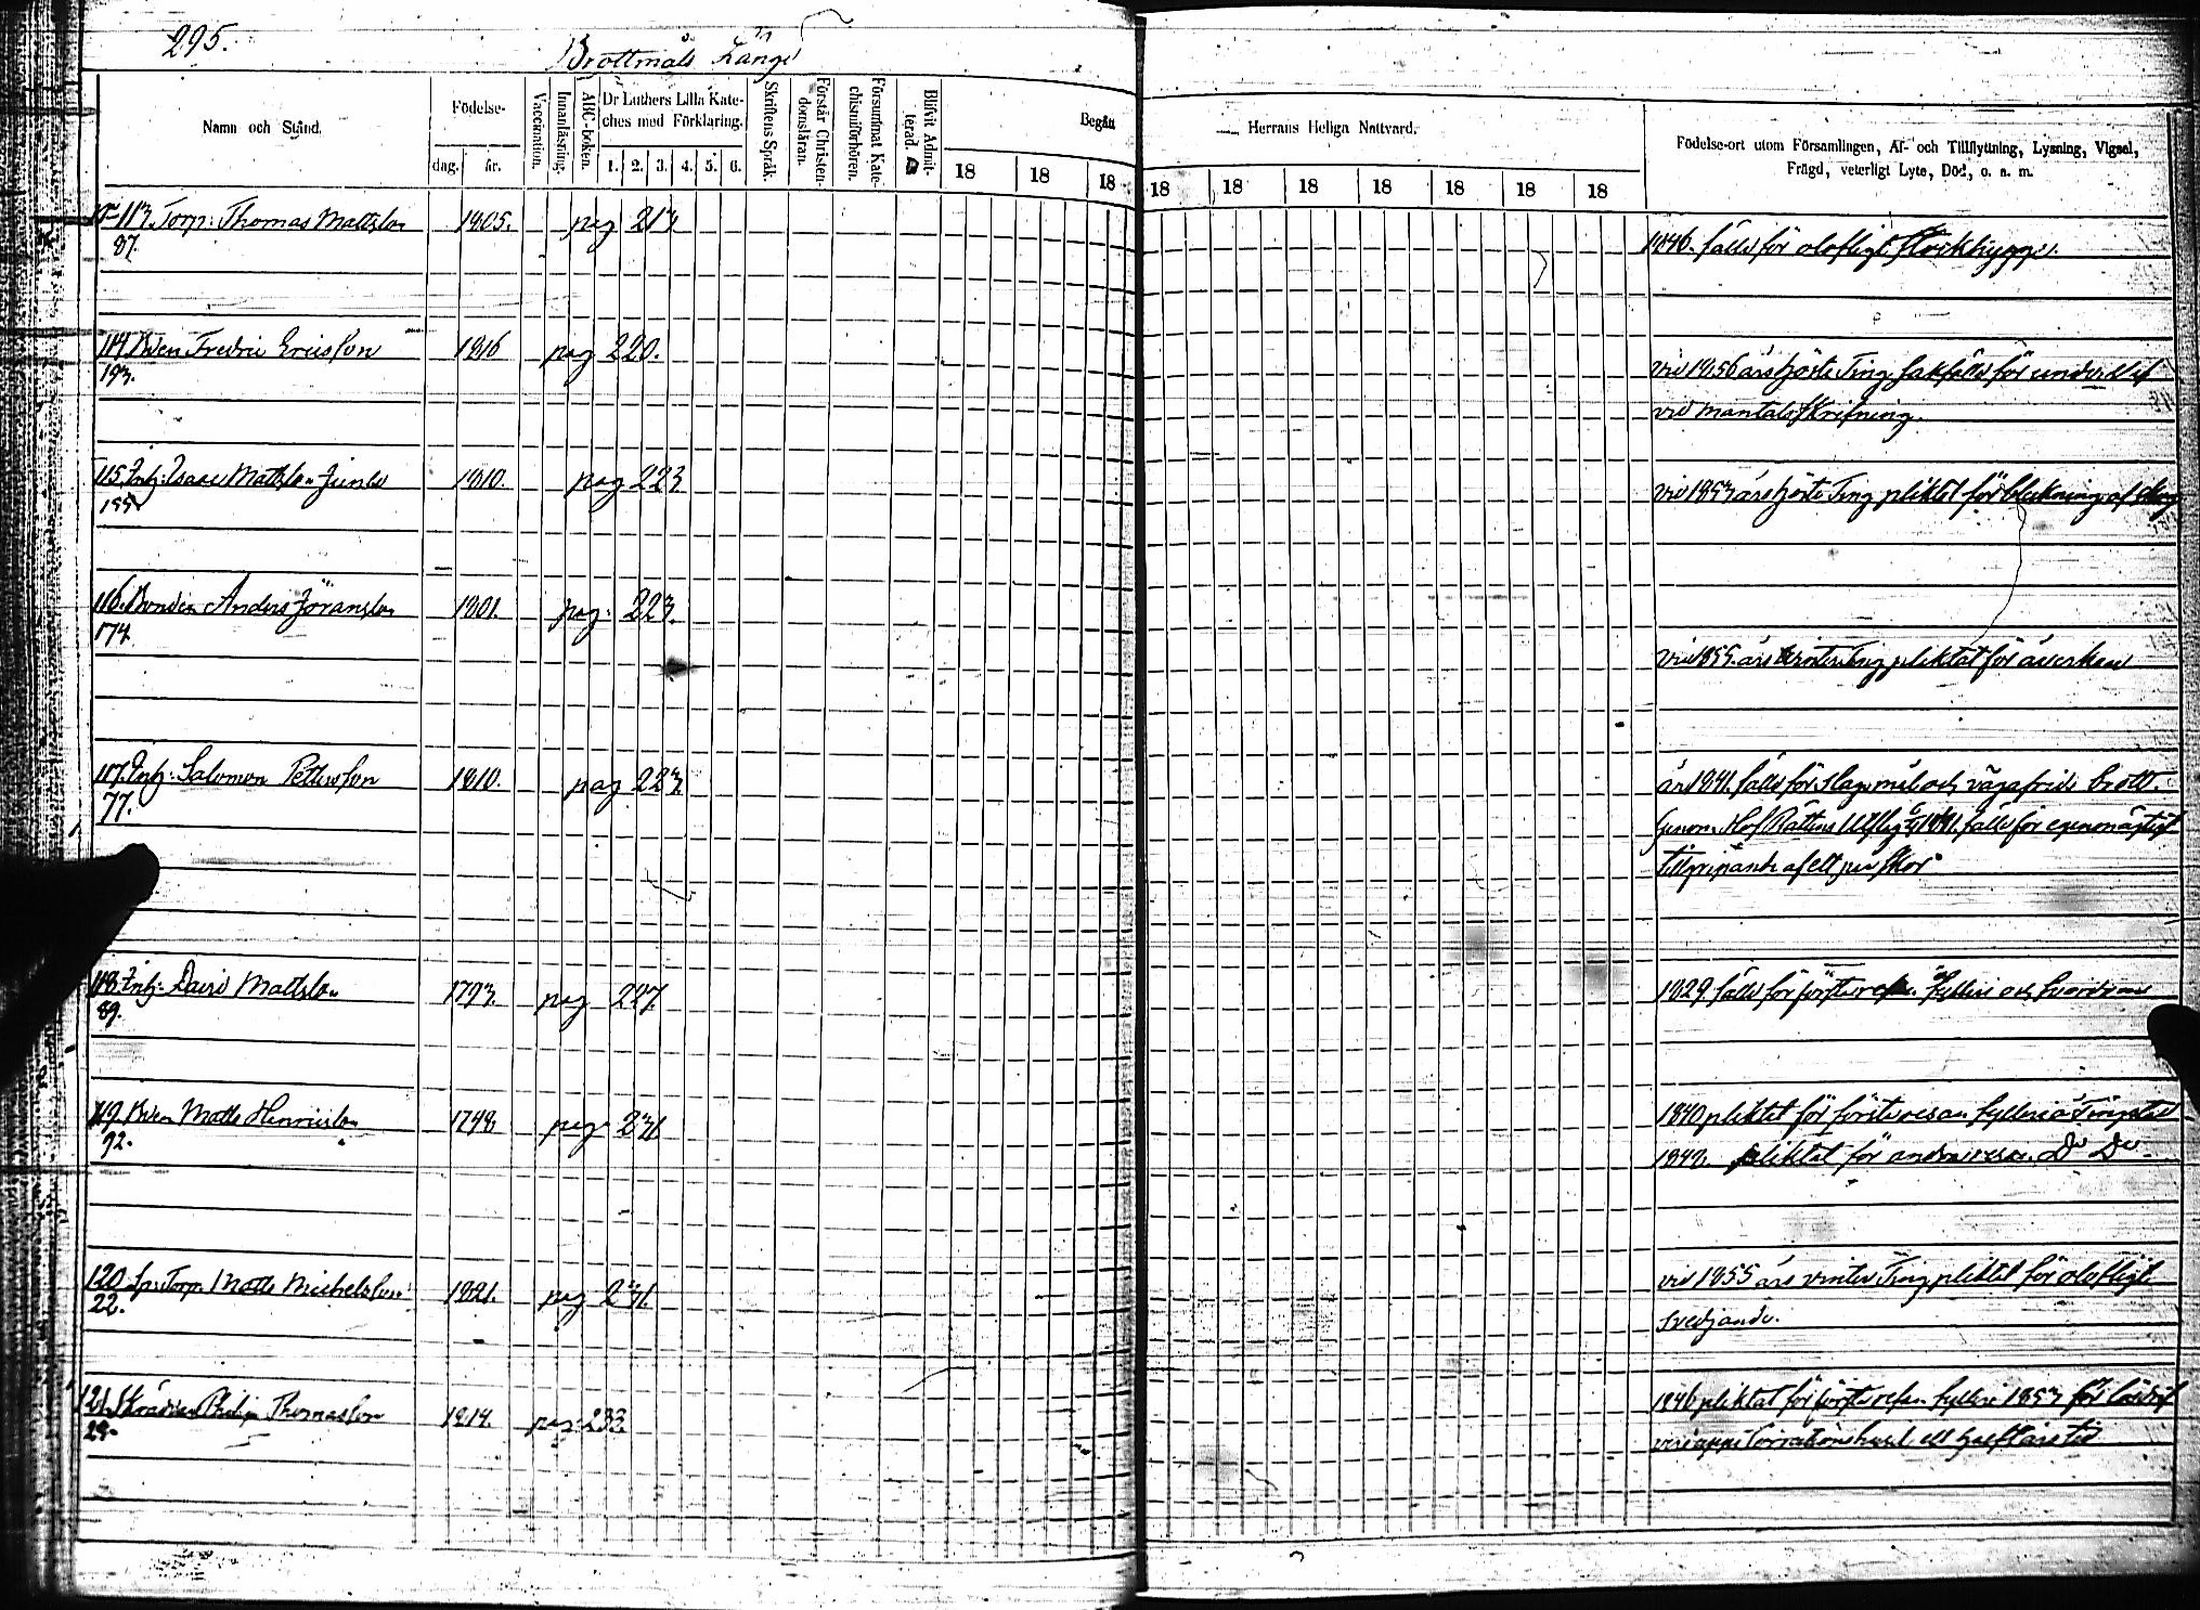 295.
Brottmåls Längd
Namn och Stånd.
Födelse-
dag. år.
Vaccination.
Innanläsning.
ABC-boken.
Dr Luthers Lilla Kate-
ches med Förklaring.
1. 2. 3. 4. 5. 6.
Skriftens Språk.
Förstår Christen-
domsläran.
Försummat Kate-
chismiförhören.
Blifvit Admit-
terad.
Begått Herrans Heliga Nattvard.
18 18 18 18 18 18 18 18 18 18
Födelse-ort utom Församlingen, Af- och Tillflyttning, Lysning, Vigsel,
Frägd, veterligt Lyte, Död, o. s. m.
113. Torp: Thomas Mattsson 1805. pag 213
87.
1846. fälld för olofligt stockhygge.
114. Fredric Ericsson 1816 pag 220.
193.
vid 1856 års höste Ting sakfälld för
vid mantalsskrifning.
115. Inh: Isaac Mattsson 1810. pag 223
vid 1853 års höste Ting pliktat för af skog
116. Bonden Anders Göransson 1801. pag: 223.
174.
vid 1855. års vinter Ting pliktat för åverkan
117. Inh: Salomon Pettersson 1810. pag 223
77.
år 1841. fälld för slagsmål och vägafrids brott.
Genom Hof Rättens Utslag 1841. fälld för egenmägtigt
tillgripande af ett par skor
118. Inh: David Mattsson 1793. pag 227.
89.
1829. fälld för första resan fylleri och
119. Matts Henricsson 1798. pag 231
92.
1840 pliktat för första resan fylleri å Tingstad
1842. pliktat för andra resan Do Do
120. Sp: Torp. Matts Michelsson 1821. pag 231.
22.
vid 1855 års vinter Ting pliktat för olofligt
svedjande.
121. Skräddar Philip Thomasson 1814. pag: 233.
28.
1846 pliktat för första resan fylleri 1853 för lösdrif
halft års tid